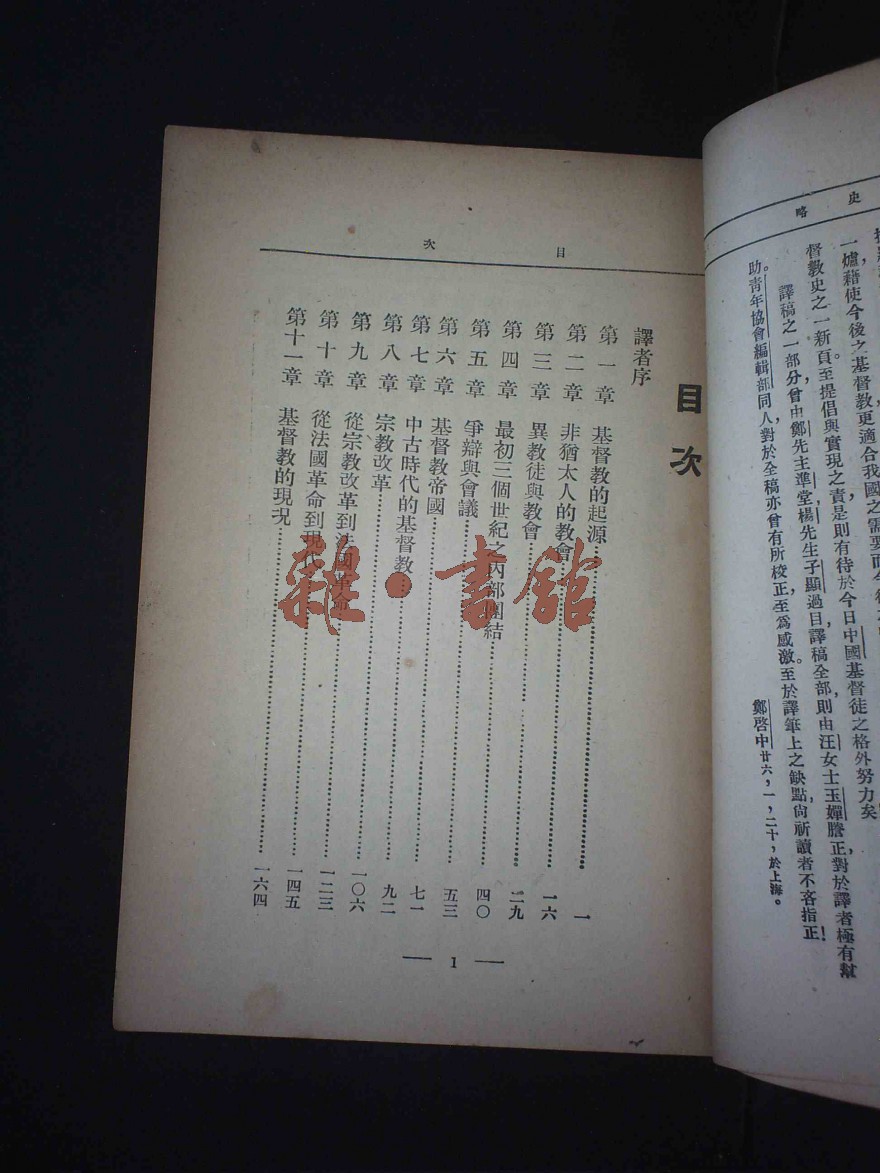 史略
一爐,藉使今後之基督教更適合我國之需要而
督教史之一新頁。至提倡與實現之責是則有待於今日中國基督徒之格外努力矣
譯稿之一部分曾由鄭先生準堂楊先生子顯過目,譯稿全部,則由汪女士玉嬋謄正,對於譯者極有幫
助。青年協會編輯部同人,對於全稿亦曾有所校正至爲感激至於譯筆上之缺點尙祈讀者不吝指正!
鄭啓中廿六,一,二十,於上海。
目次
目次
譯者序
第一章 基督教的起源 一
第二章 非猶太人的教會 一六
第三章 異教徒與教會 二九
第四章 最初三個世紀之內部團結 四〇
第五章 爭辯與會議 五三
第六章 基督教帝國 七一
第七章 中古時代的基督教 九二
第八章 宗教改革 一〇六
第九章 從宗教改革到法國革命 一二三
第十章 從法國革命到現代 一四五
第十一章 基督教的現況 一六四
— 1 —
雜·書館